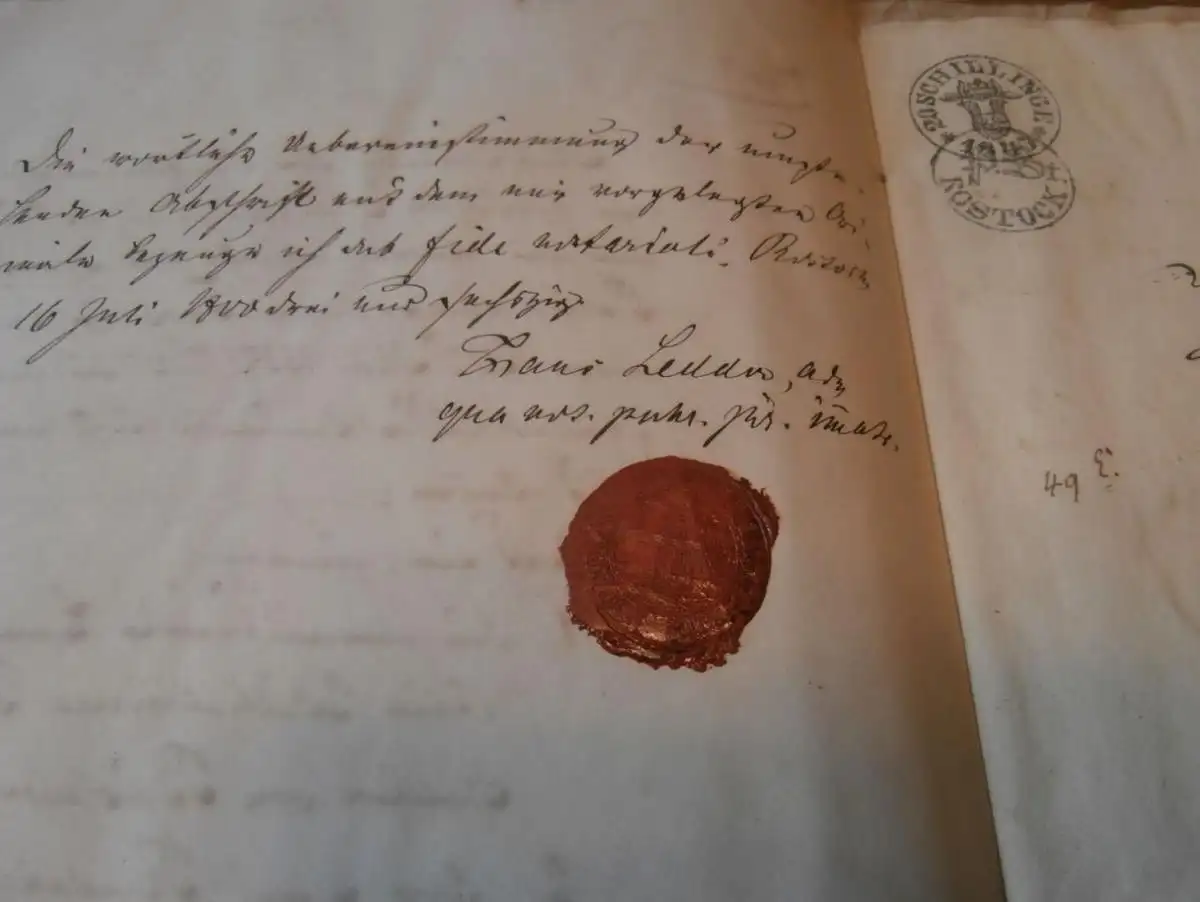 Die wörtliche Uebereinstimmung der umste-
henden Abschrift mit dem mir vorgelegten Ori-
ginale bezeuge ich sub fide notariali. Rostock
16 Juli 1800 drei und sechszig.
Hans
qua not. publ. jur. immatr.
20 SCHILLINGE
ROSTOCK
49